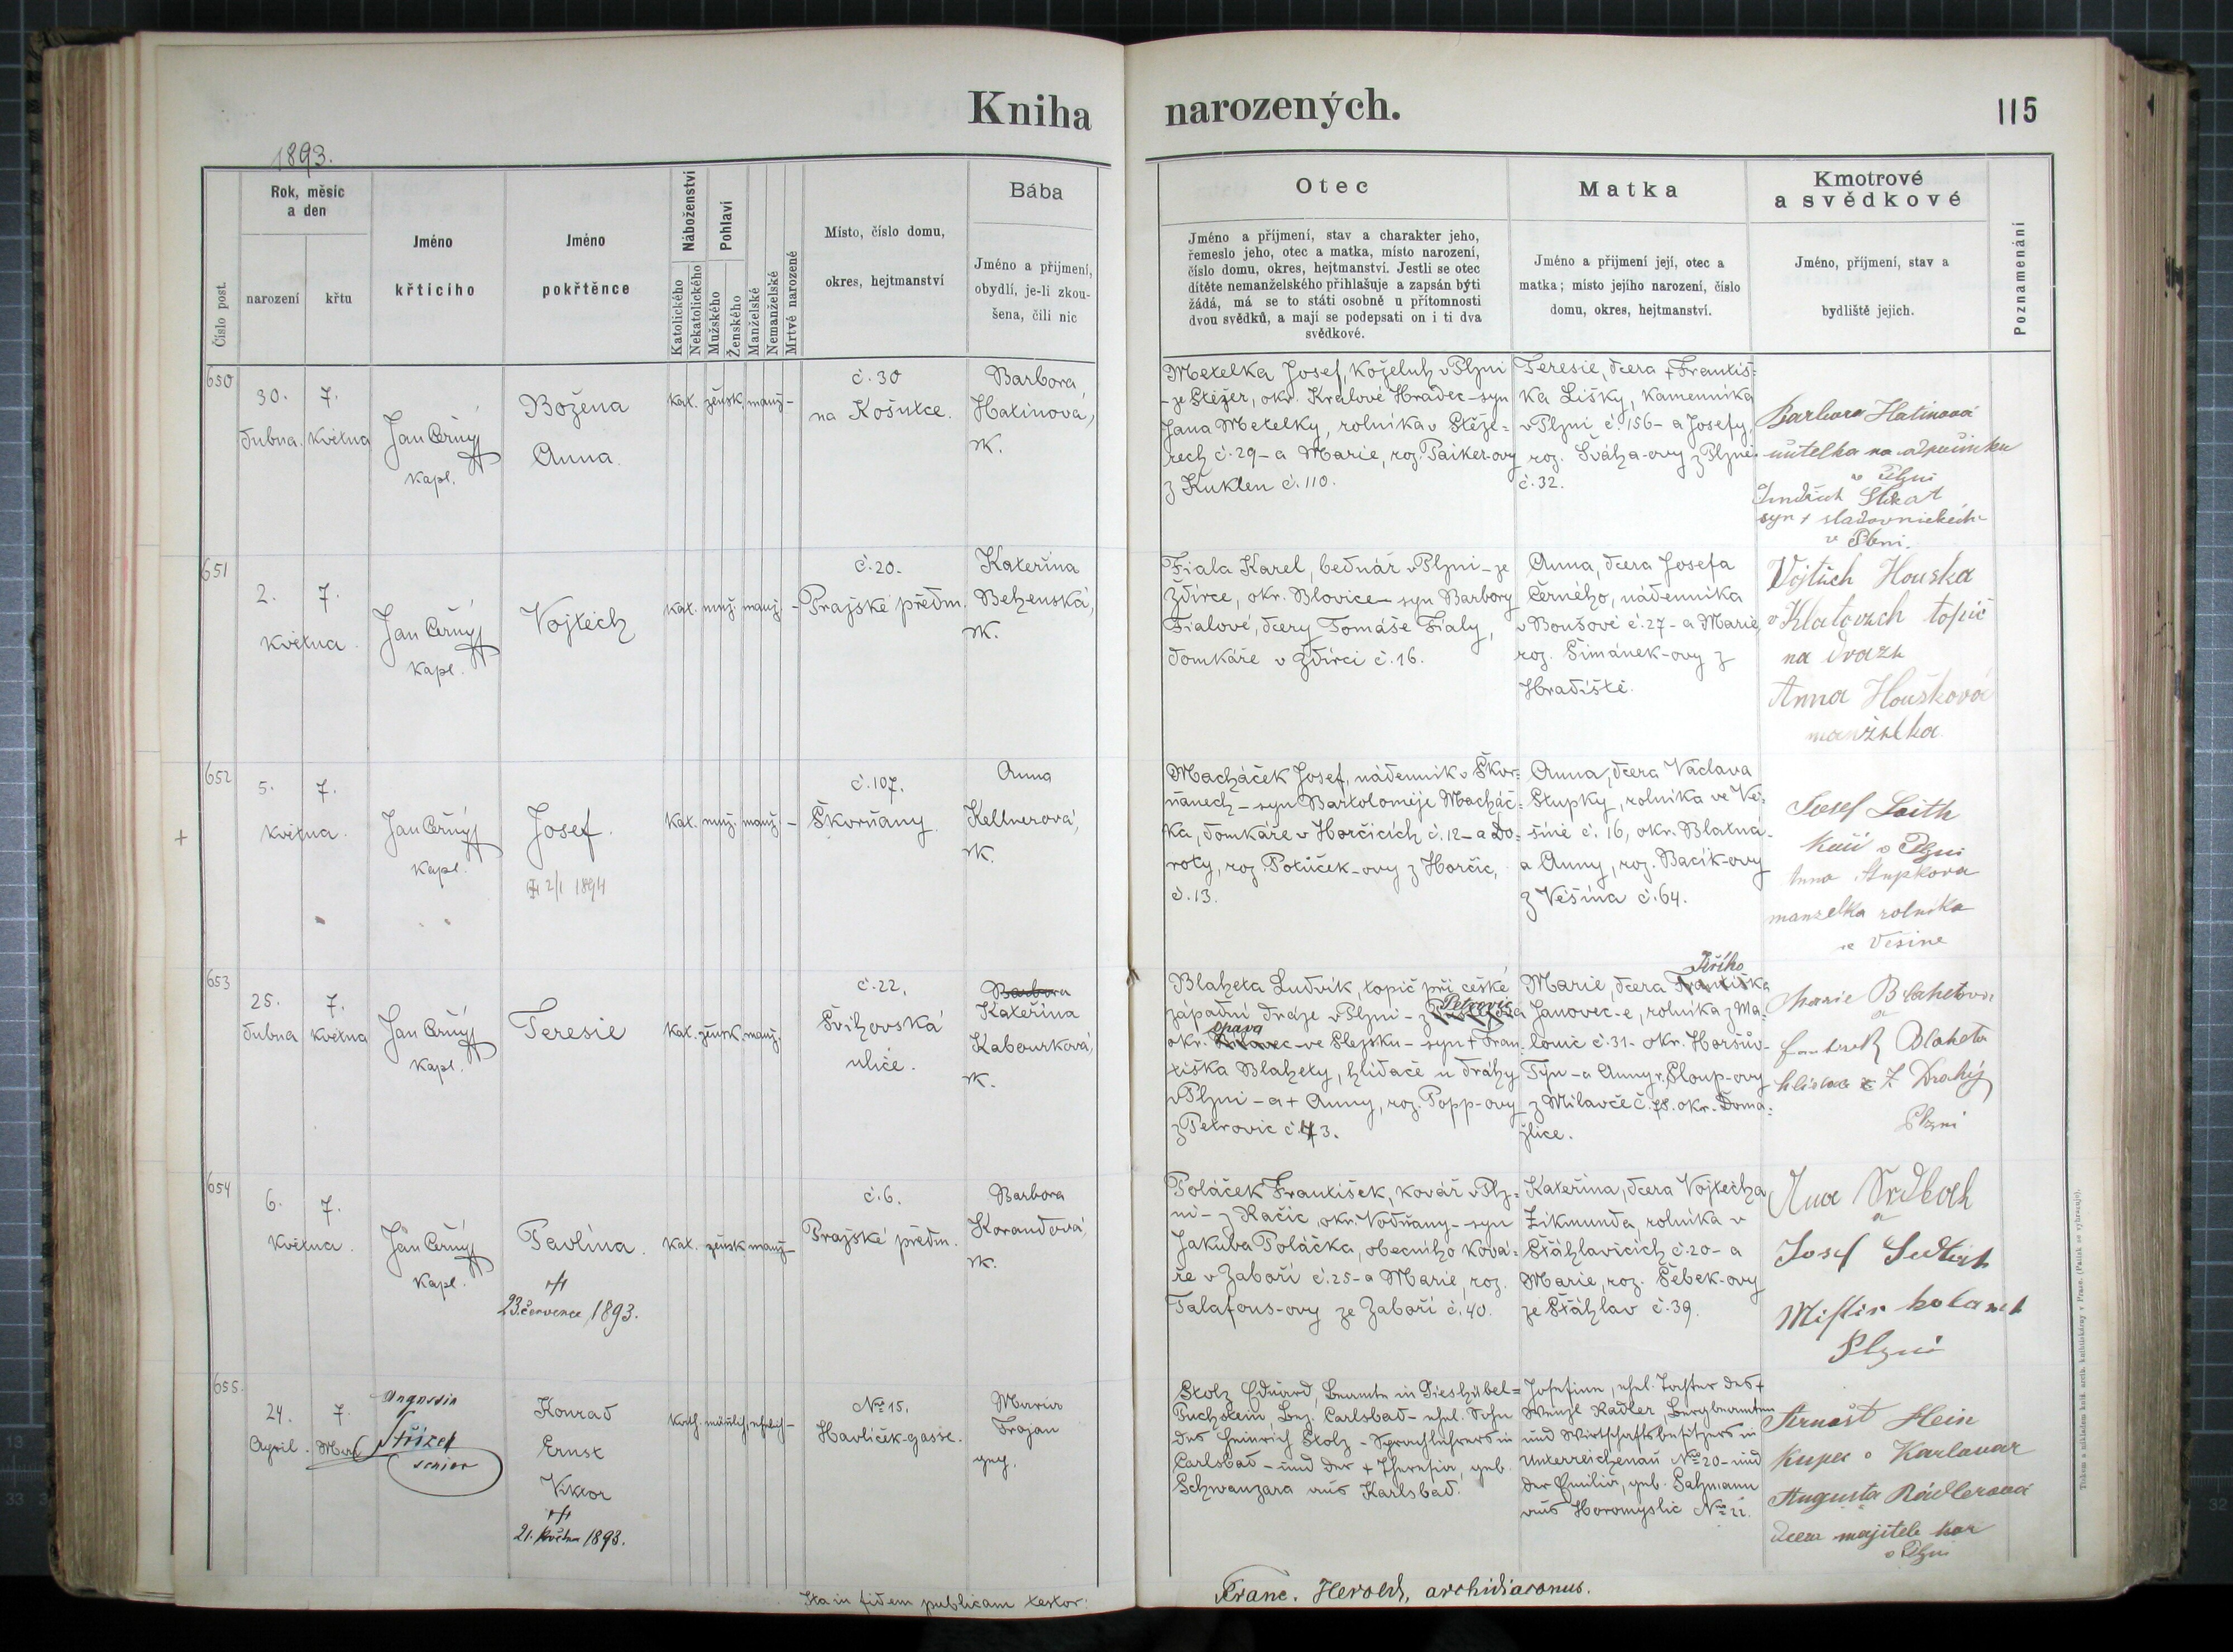 Kniha narozených.
115
1893.
Číslo post.
Rok, měsíc
a den
narození
křtu
Jméno
křticího
Jméno
pokřtěnce
Náboženství
Katolického
Nekatolického
Pohlaví
Mužského
Ženského
Manželské
Nemanželské
Mrtvě narozené
Místo, číslo domu,
okres, hejtmanství
Bába
Jméno a příjmení,
obydlí, je-li zkou-
šena, čili nic
Otec
Jméno a příjmení, stav a charakter jeho,
řemeslo jeho, otec a matka, místo narození,
číslo domu, okres, hejtmanství. Jestli se otec
dítěte nemanželského přihlašuje a zapsán býti
žádá, má se to státi osobně u přítomnosti
dvou svědků, a mají se podepsati on i ti dva
svědkové.
Matka
Jméno a příjmení její, otec a
matka; místo jejího narození, číslo
domu, okres, hejtmanství.
Kmotrové
a svědkové
Jméno, příjmení, stav a
bydliště jejich.
Poznamenání
650
30.
dubna.
7.
května
Jan Černý
kapl.
Božena
Anna.
kat. žensk. manž. –
č. 30
na Košutce.
Barbora
Hatinová,
zk.
Metelka Josef, koželuh v Plzni
- ze Stěžer, okr. Králové Hradec – syn
Jana Metelky, rolníka v Stěže=
rech č. 29 – a Marie, roz. Paiker-ovy
z Kuklen č. 110.
Teresie, dcera + Františ=
ka Lišky, kameníka
v Plzni č. 156 – a Josefy,
roz. Šváha-ovy z Plzně
č. 32.
Barbora Hatinová
učitelka na odpočinku
v Plzni
Jindřich
syn + sladovnických
v Plzni.
651
2.
května
7.
Jan Černý
kapl.
Vojtěch
kat. muž. manž. –
č. 20.
Pražské předm.
Kateřina
Behenská,
zk.
Fiala Karel, bednář v Plzni – ze
Ždírce, okr. Blovice – syn Barbory
Fialové, dcery Tomáše Fialy,
domkáře v Ždírci č. 16.
Anna, dcera Josefa
Černého, nádenníka
v Boušové č. 27 – a Marie,
roz. Šimánek-ovy z
Hradiště.
Vojtěch Houska
v Klatovech topič
na dráze
Anna Houšková
manželka
652
+
5.
května.
7.
Jan Černý
kapl.
Josef.
2/1 1894
kat. muž. manž. –
č. 107.
Škorňany
Anna
Kellnerová,
zk.
Macháček Josef, nádenník v Škor=
ňanech – syn Bartoloměje Macháč=
ka, domkáře v Horčicích č. 12 – a Do=
roty, roz. Potůček-ovy z Horčic,
č. 13.
Anna, dcera Václava
Stupky, rolníka ve Ve=
šíně č. 16, okr. Blatná –
a Anny, roz. Bacík-ovy
z Věšína č. 64.
Josef Laith
v Plzni
Anna Stupkova
manzelka rolnika
ve Vešine
653
25.
dubna
7.
května
Jan Černý
kapl.
Teresie
kat. žensk. manž.
č. 22.
Švihovská
ulice.
Barbora
Kateřina
Kabourková,
zk.
Blaheta Ludvík, topič při české
západní dráze v Plzni – z Petrovic
okr. Opava – ve Slezsku – syn + Fran=
tiška Blahety, hlídače u dráhy
v Plzni – a + Anny, roz. Popp-ovy
z Petrovic č. 43.
Marie, dcera Františka Jiřího
Janovec-e, rolníka z Ma=
lonic č. 31 – okr. Horšův-
Týn – a Anny r. Sloup-ovy
z Milavče č. 78. okr. Doma=
žlice.
Marie Blahetova
a
Blaheta
Plzni
654
6.
května.
7.
Jan Černý
kapl.
Pavlína.
23. července 1893.
kat. žensk. manž. –
č. 6.
Pražské předm.
Barbora
Korandová,
zk.
Poláček František, kovář v Plz=
ni – z Račic, okr. Vodňany – syn
Jakuba Poláčka, obecního ková=
ře v Záboří č. 25 – a Marie, roz.
Talafous-ovy ze Záboří č. 40.
Kateřina, dcera Vojtěcha
Zikmunda, rolníka v
Šťáhlavicích č. 20 – a
Marie, roz. Šebek-ovy
ze Šťáhlav č. 39.
a
Josef
Plzni
655.
24.
April.
7.
Mai
Augustin
Střízek
senior
Konrad
Ernst
Viktor
21. května 1893.
kath. männlich ehelich –
No 15.
Havlíček-gasse.
Maria
Trojan
gep.
Stolz Eduard, Beamte in Gieshübel=
Puchstein, Bez. Carlsbad – ehel. Sohn
des Heinrich Stolz – Sprachlehrers in
Carlsbad – und der + Theresia, geb.
Schwanzara aus Karlsbad.
Josefine, ehel. Tochter des +
Wenzl Radler, Bergbeamten
und Wirtschaftsbesitzers in
Unterreichenau No 20 – und
der Emilia, geb. Salzmann
aus Horomyslic No 11.
Arnošt Hein
kupec v Karlovar
Augusta Rádlerová
dcera majitele
v Plzni
Ita in fidem publicam testor:
Franc. Herold, archidiaconus.